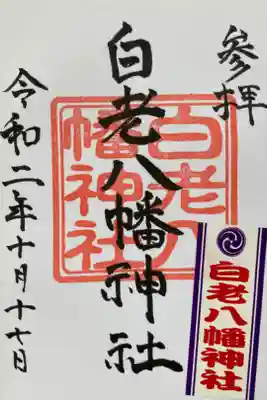 参拝
白老八幡神社
白老八幡神社
令和二年十月十七日
白老八幡神社